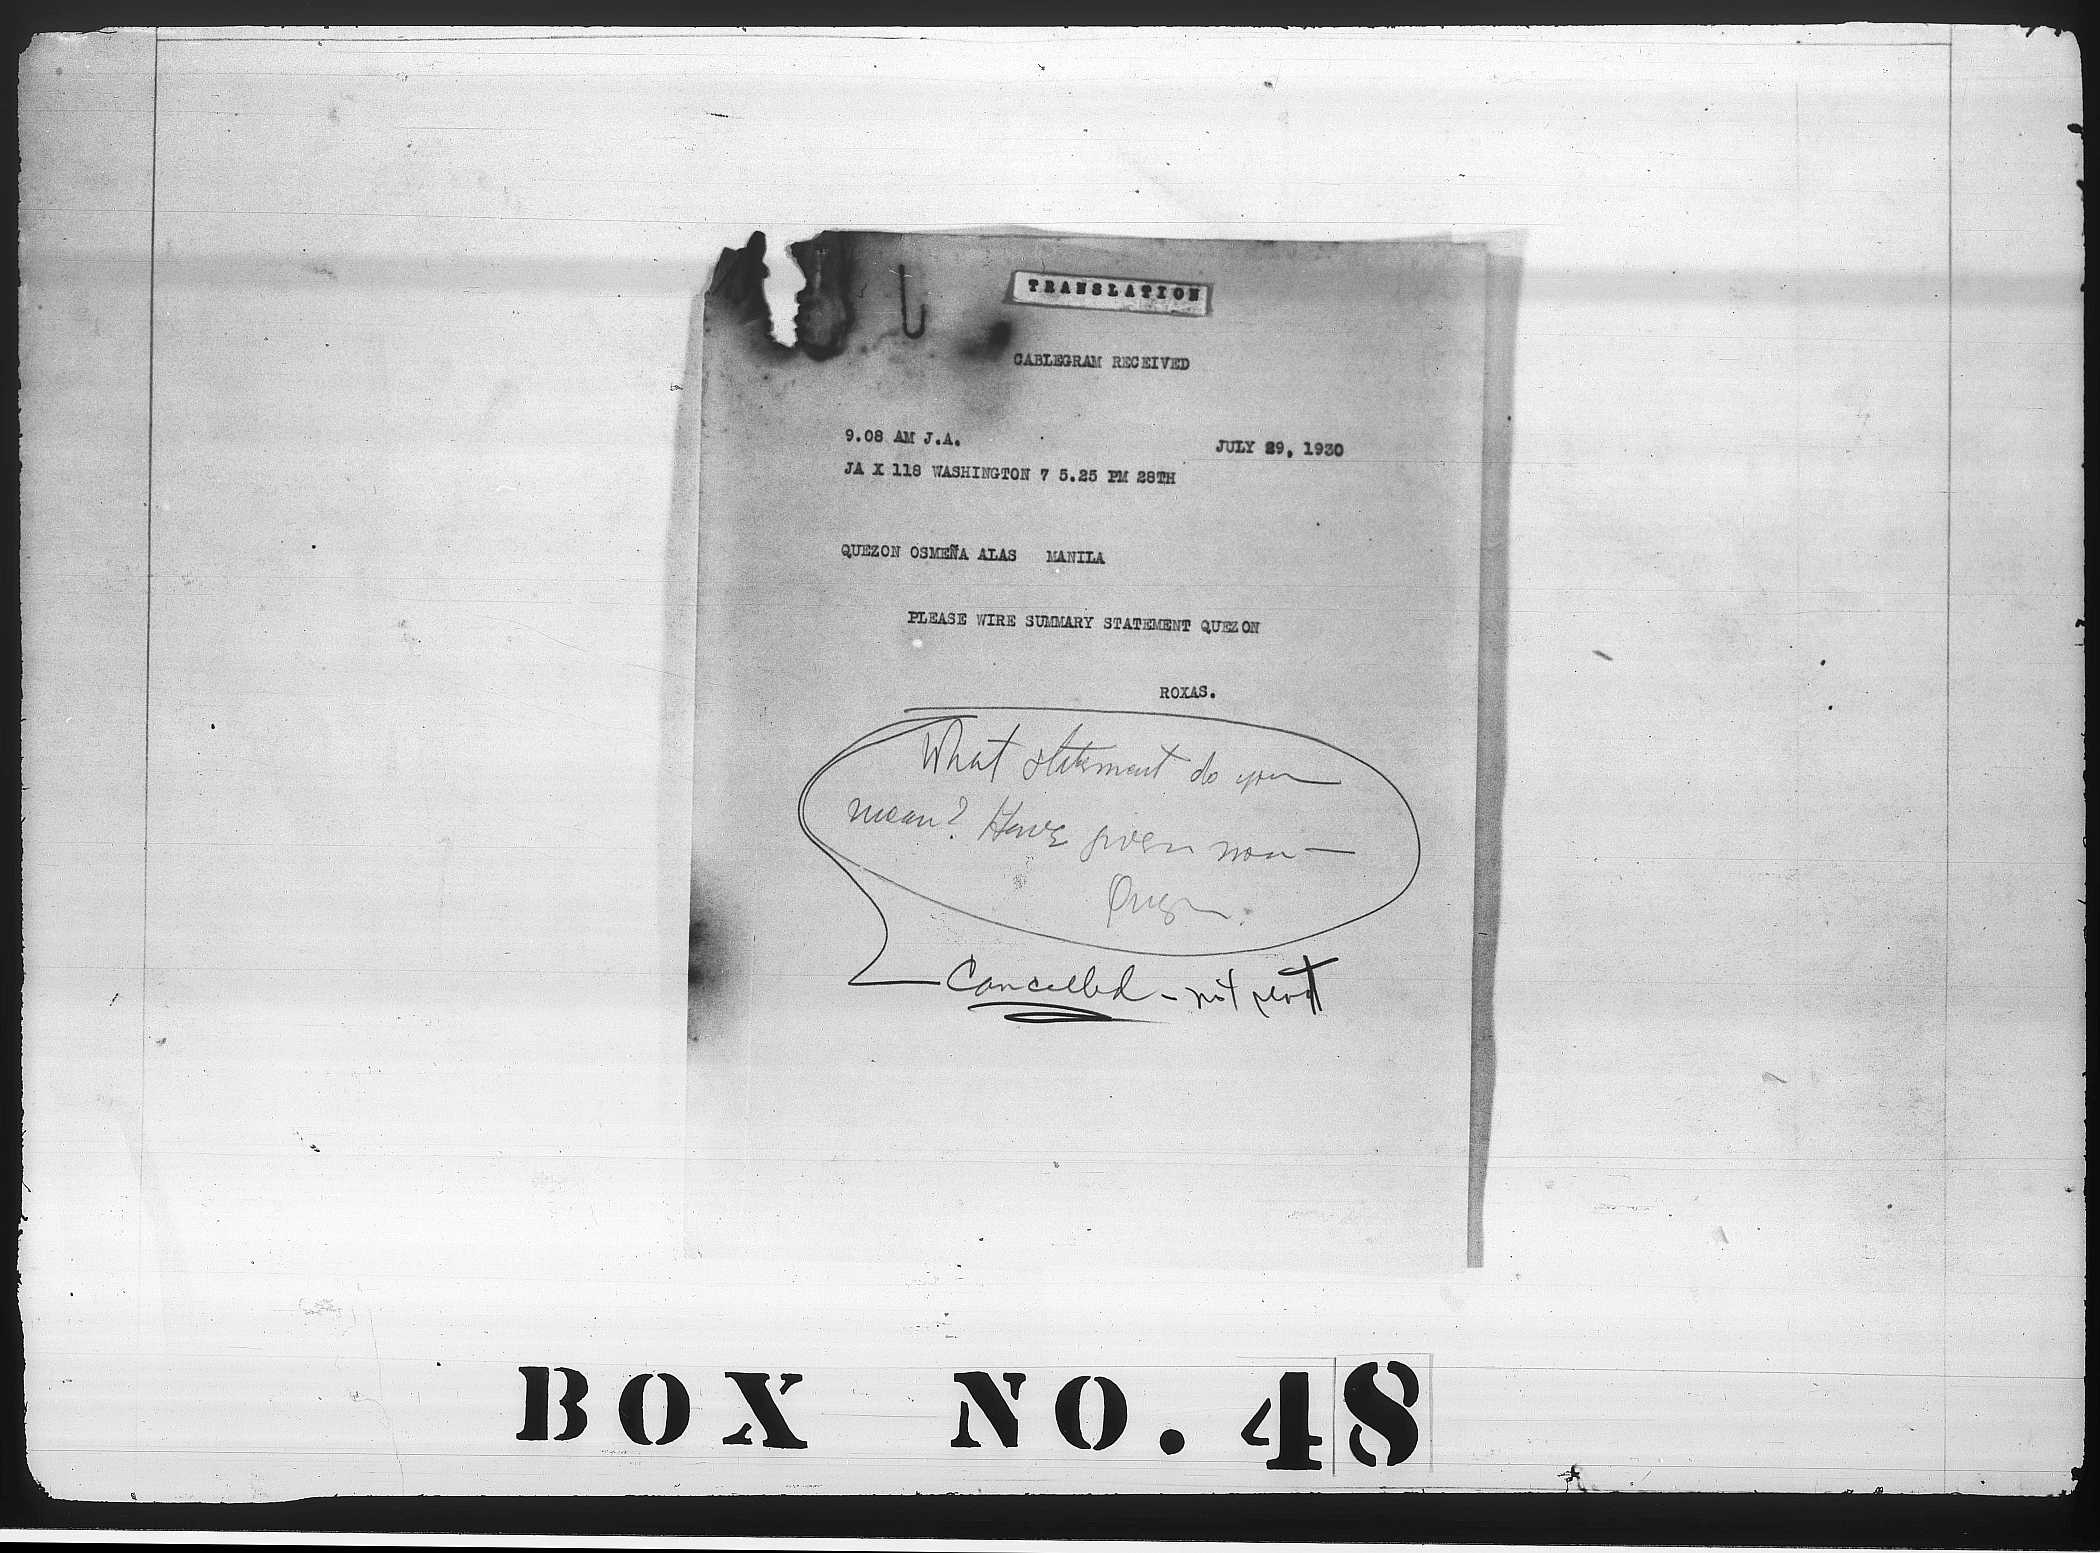 TRANSLATION
CABLEGRAM RECEIVED
9.08 AM J.A.
JULY 29, 1930
JA X 118 WASHINGTON 7 5.25 PM 28TH
QUEZON OSMEÑA ALAS MANILA
PLEASE WIRE SUMMARY STATEMENT QUEZON
ROXAS.
What statement do you
mean? Have given non—
Quezon.
Cancelled - not sent
BOX NO. 48